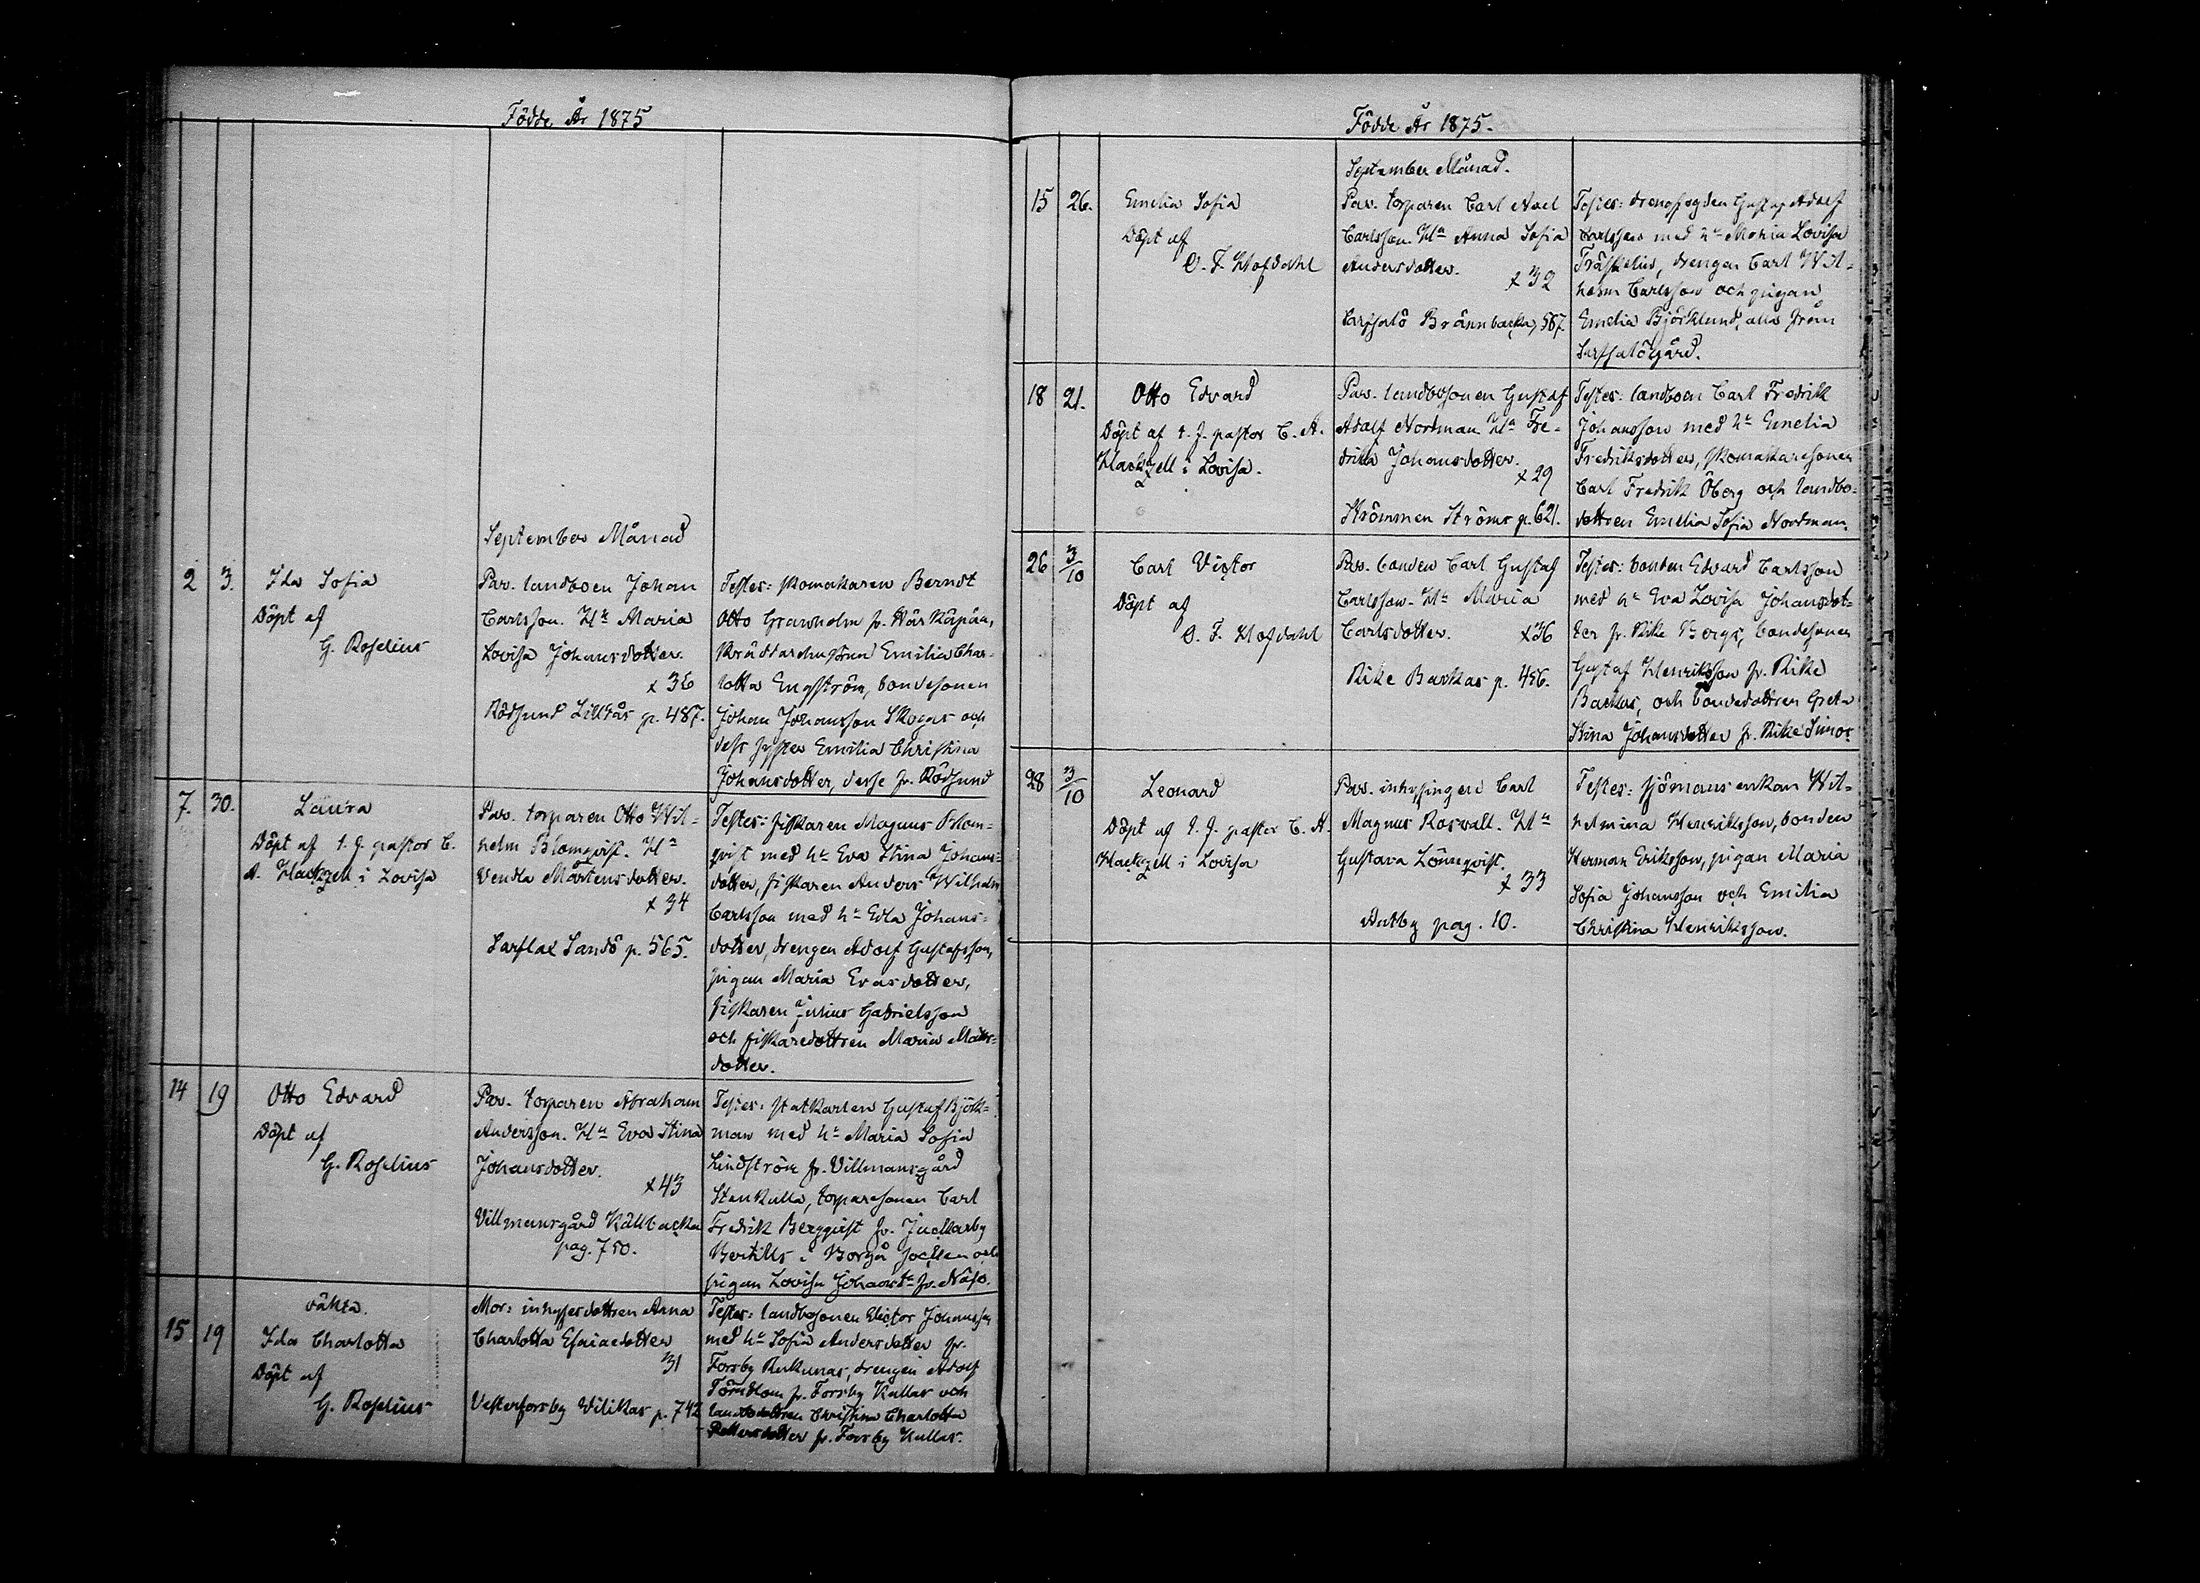 Födde År 1875
September Månad
2 3. Ida Sofia
Döpt af
G. Roselius
Par. landboen Johan
Carlsson. Hu Maria
Lovisa Johansdotter.
x 36
Rödsund Lillfås p. 487.
Testes: skomakaren Berndt
Otto Granholm fr.
Skräddarehustrun Emilia Char-
lotta Engström, bondesonen
Johan Johansson Skogas och
dess syster Emilia Christina
Johansdotter, desse fr. Rödsund
7. 30. Laura
Döpt af t. f. pastor C.
A. Hackzell i Lovisa
Par. torparen Otto Wil-
helm Blomqvist. Hu
Vendla Mårtensdotter.
x 34
Sarflax Sandö p. 565.
Testes: fiskaren Magnus Blom-
qvist med hu Eva Stina Johans-
dotter, fiskaren Anders Wilhelm
Carlsson med hu Edla Johans-
dotter, drengen Adolf Gustafsson,
pigan Maria Evasdotter,
fiskaren Julius Gabrielsson
och fiskaredottren Maria Mats-
dotter.
14 19 Otto Edvard
Döpt af
G. Roselius
Par. torparen Abraham
Andersson. Hu Eva Stina
Johansdotter.
x 43
Villmansgård Källbacka
pag. 750.
Testes: statkarlen Gustaf Björk-
man med hu Maria Sofia
Lindström fr. Villmansgård
Stenkulla, torparesonen Carl
Fredrik Bergqvist fr. Juckarby
Bertills i Borgå socken och
pigan Lovisa Johansdr fr. Näse.
15 19 oäkta.
Ida Charlotta
Döpt af
G. Roselius
Mor: inhysesdottren Anna
Charlotta Esaiaedotter
31
Vesterforsby Vilikas p. 742
Testes: landbosonen Victor Johansson
med hu Sofia Andersdotter fr.
Forsby Rukunas, drengen Adolf
Törnblom fr. Forsby Kullas och
landbodottren Christina Charlotta
Pettersdotter fr. Forsby Kullas.
Födde År 1875.
September Månad.
15 26. Emelia Sofia
Döpt af
O. F. Hofdahl
Par. torparen Carl Axel
Carlsson. Hu Anna Sofia
Andersdotter.
x 32
Sarfsalö Brännbacka, 587
Testes: drengfogden Gustaf Adolf
Carlsson med hu Maria Lovisa
Träskelin, drengen Carl Wil-
helm Carlsson och pigan
Emelia Björklund, alla från
Sarfsalögård.
18 21. Otto Edvard
Döpt af t. f. pastor C. A.
Hackzell i Lovisa.
Par. landbosonen Gustaf
Adolf Nordman Hu Fre-
drika Johansdotter.
x 29
Strömmen Ströms p. 621.
Testes: landboen Carl Fredrik
Johansson med hu Emelia
Fredriksdotter, skomakaresonen
Carl Fredrik Öberg och landbo-
dottren Emelia Sofia Nordman.
26 3/10 Carl Victor
Döpt af
O. F. Hofdahl
Par. bonden Carl Gustaf
Carlsson. Hu Maria
Carlsdotter. x 36
Rike Backas p. 456.
Testes: bonden Edvard Carlsson
med hu Eva Lovisa Johansdot-
ter fr. Rike Bergs, bondesonen
Gustaf Henriksson fr. Rike
Backas, och bondedottren Greta
Stina Johansdotter fr. Rike Simos.
28 3/10 Leonard
Döpt af t. f. pastor C. A.
Hackzell i Lovisa
Par. inhysingen Carl
Magnus Roswall. Hu
Gustava Lönnqvist.
x 33
Antby pag. 10.
Testes: sjömansenkan Wil-
helmina Henriksson, bonden
Herman Eriksson, pigan Maria
Sofia Johansson och Emilia
Christina Henriksson.